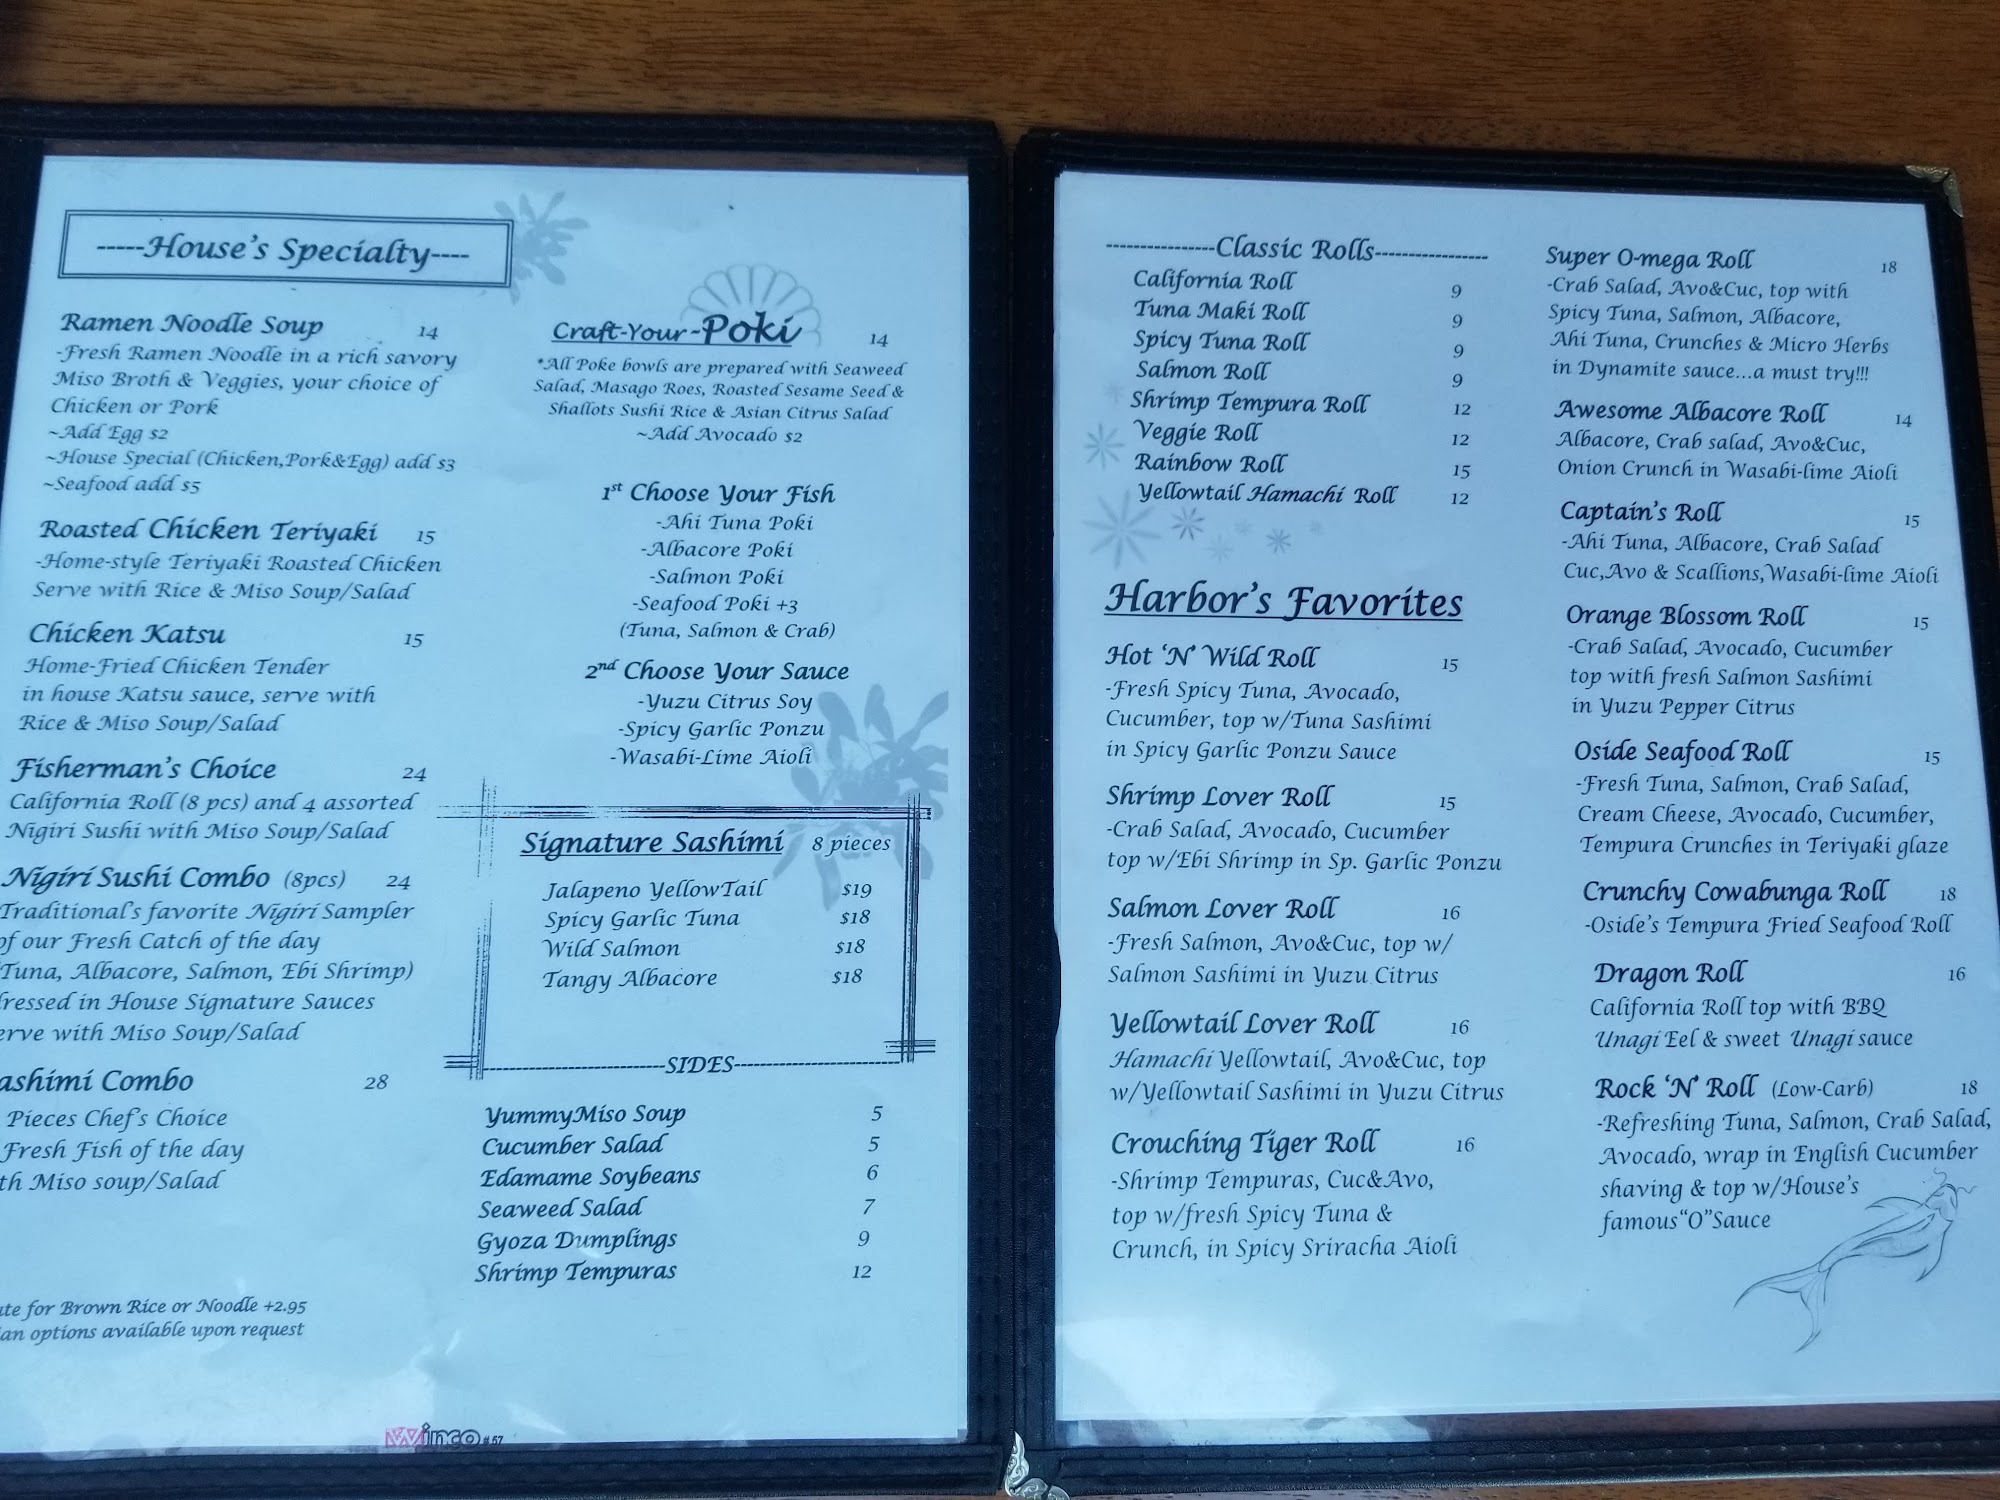 -----House's Specialty----
Ramen Noodle Soup 14
-Fresh Ramen Noodle in a rich savory
Miso Broth & Veggies, your choice of
Chicken or Pork
~Add Egg $2
~House Special (Chicken,Pork&Egg) add $3
~Seafood add $5
Roasted Chicken Teriyaki 15
-Home-style Teriyaki Roasted Chicken
Serve with Rice & Miso Soup/Salad
Chicken Katsu 15
Home-Fried Chicken Tender
in house Katsu sauce, serve with
Rice & Miso Soup/Salad
Fisherman's Choice 24
California Roll (8 pcs) and 4 assorted
Nigiri Sushi with Miso Soup/Salad
Nigiri Sushi Combo (8pcs) 24
Traditional's favorite Nigiri Sampler
of our Fresh Catch of the day
Tuna, Albacore, Salmon, Ebi Shrimp)
ressed in House Signature Sauces
erve with Miso Soup/Salad
ashimi Combo 28
Pieces Chef's Choice
Fresh Fish of the day
th Miso soup/Salad
ute for Brown Rice or Noodle +2.95
ian options available upon request
Craft-Your-Poki 14
*All Poke bowls are prepared with Seaweed
Salad, Masago Roes, Roasted Sesame Seed &
Shallots Sushi Rice & Asian Citrus Salad
~Add Avocado $2
1st Choose Your Fish
-Ahi Tuna Poki
-Albacore Poki
-Salmon Poki
-Seafood Poki +3
(Tuna, Salmon & Crab)
2nd Choose Your Sauce
-Yuzu Citrus Soy
-Spicy Garlic Ponzu
-Wasabi-Lime Aioli
Signature Sashimi 8 pieces
Jalapeno YellowTail $19
Spicy Garlic Tuna $18
Wild Salmon $18
Tangy Albacore $18
SIDES
YummyMiso Soup 5
Cucumber Salad 5
Edamame Soybeans 6
Seaweed Salad 7
Gyoza Dumplings 9
Shrimp Tempuras 12
Winco #57
----------------Classic Rolls-----------------
California Roll 9
Tuna Maki Roll 9
Spicy Tuna Roll 9
Salmon Roll 9
Shrimp Tempura Roll 12
Veggie Roll 12
Rainbow Roll 15
Yellowtail Hamachi Roll 12
Harbor's Favorites
Hot 'N' Wild Roll 15
-Fresh Spicy Tuna, Avocado,
Cucumber, top w/Tuna Sashimi
in Spicy Garlic Ponzu Sauce
Shrimp Lover Roll 15
-Crab Salad, Avocado, Cucumber
top w/Ebi Shrimp in Sp. Garlic Ponzu
Salmon Lover Roll 16
-Fresh Salmon, Avo&Cuc, top w/
Salmon Sashimi in Yuzu Citrus
Yellowtail Lover Roll 16
Hamachi Yellowtail, Avo&Cuc, top
w/Yellowtail Sashimi in Yuzu Citrus
Crouching Tiger Roll 16
-Shrimp Tempuras, Cuc&Avo,
top w/fresh Spicy Tuna &
Crunch, in Spicy Sriracha Aioli
Super O-mega Roll 18
-Crab Salad, Avo&Cuc, top with
Spicy Tuna, Salmon, Albacore,
Ahi Tuna, Crunches & Micro Herbs
in Dynamite sauce...a must try!!!
Awesome Albacore Roll 14
Albacore, Crab salad, Avo&Cuc,
Onion Crunch in Wasabi-lime Aioli
Captain's Roll 15
-Ahi Tuna, Albacore, Crab Salad
Cuc,Avo & Scallions,Wasabi-lime Aioli
Orange Blossom Roll 15
-Crab Salad, Avocado, Cucumber
top with fresh Salmon Sashimi
in Yuzu Pepper Citrus
Oside Seafood Roll 15
-Fresh Tuna, Salmon, Crab Salad,
Cream Cheese, Avocado, Cucumber,
Tempura Crunches in Teriyaki glaze
Crunchy Cowabunga Roll 18
-Oside's Tempura Fried Seafood Roll
Dragon Roll 16
California Roll top with BBQ
Unagi Eel & sweet Unagi sauce
Rock 'N' Roll (Low-Carb) 18
-Refreshing Tuna, Salmon, Crab Salad,
Avocado, wrap in English Cucumber
shaving & top w/House's
famous"O"Sauce